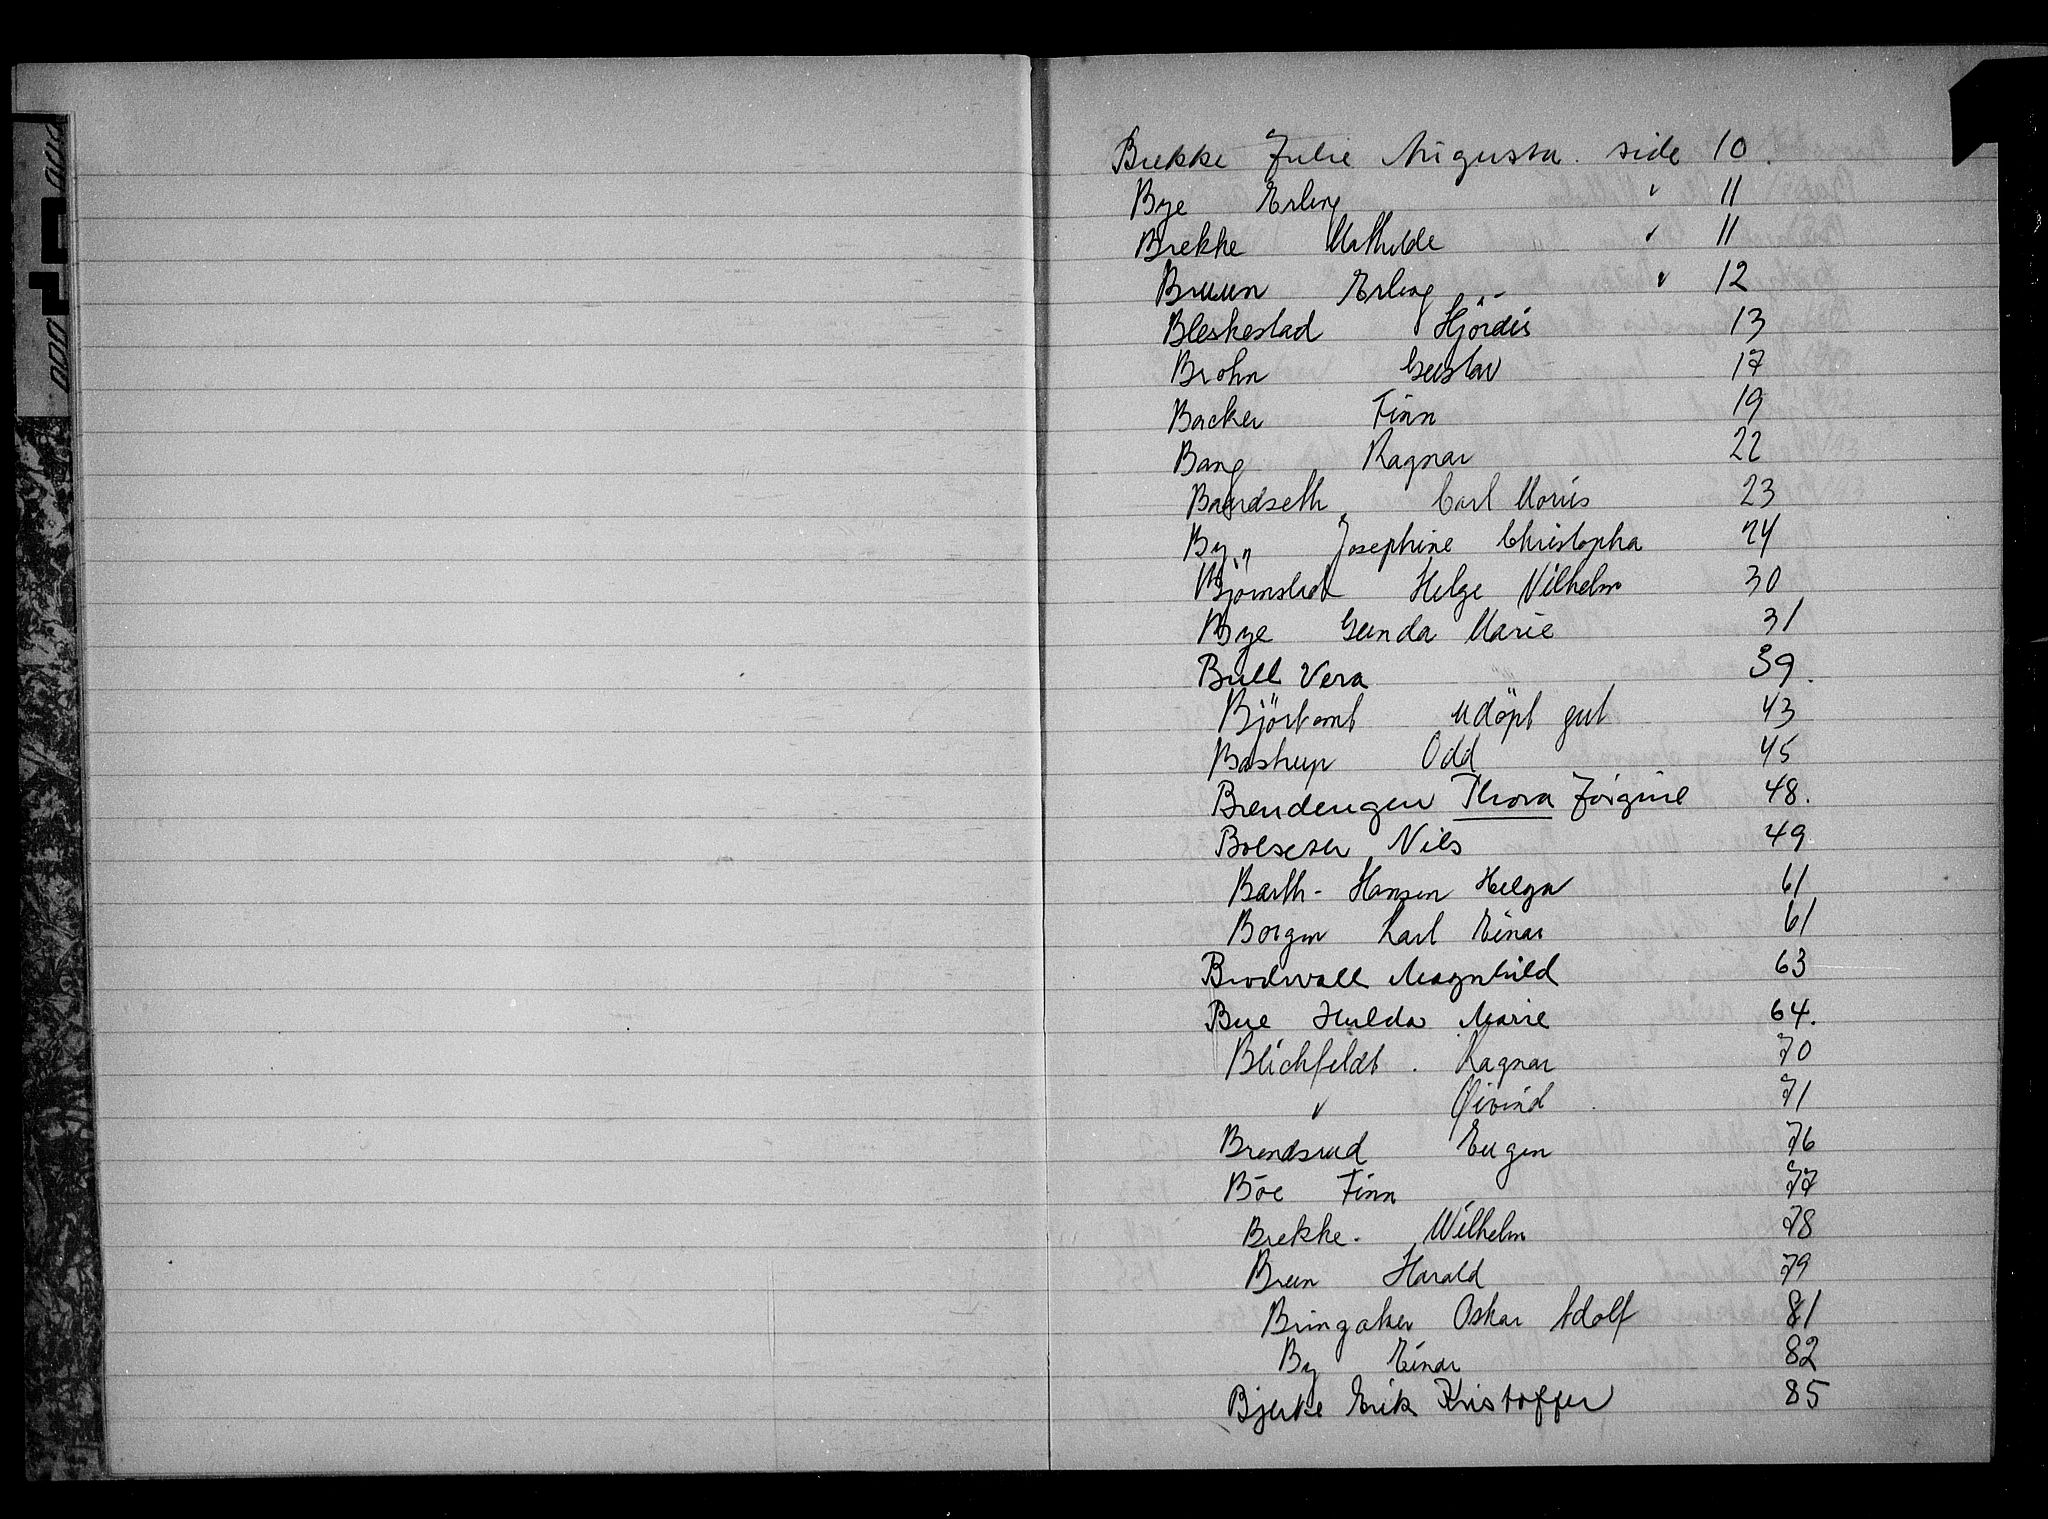 Brekke Julie Augusta. side 10.
Bye Erling " 11
Brekke Mathilde " 11
Bruun Erling " 12
Bleskestad Hjördis 13
Brohn Gustav 17
Backer Finn 19
Bang Ragnar 22
Baardseth Carl Moriis 23
By Josephine Christopha 24
Björnstad Helge Vilhelm 30
Bye Gunda Marie 31
Bull Vera 39.
Björtomt udöpt gut 43
Bastrup Odd 45
Brendengen Thora Jörgine 48.
Nils 49
Barth-Hansen Helga 61
Borgen Karl Einar 61
Brodwall Magnhild 63
Bue Hulda Marie 64.
Blichfeldt. Ragnar 70
" Øivind 71
Brendsrud Eugen 76
Böe Finn 77
Brekke. Wilhelm 78
Brun Harald 79
Bringaker Oskar Adolf 81
By Einar 82
Bjerke Erik Kristoffer 85